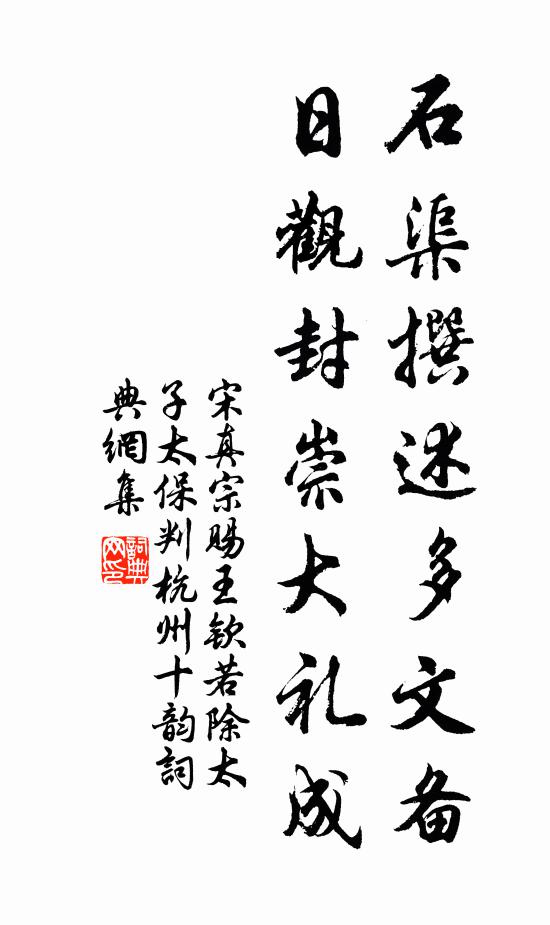 石渠撰述多文备
日觀封崇大礼成
宋真宗賜王欽若除太
子太保判杭州十韵詞
典網集
詞典
网印